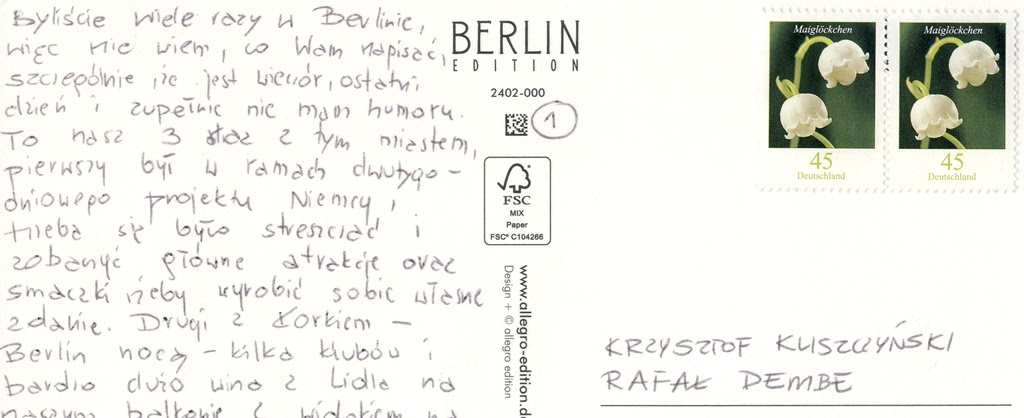 Byliście wiele razy w Berlinie,
więc nie wiem, co Wam napisać,
szczególnie, że jest wieczór, ostatni
dzień i zupełnie nie mam humoru.
To nasz 3 raz z tym miastem,
pierwszy był w ramach dwutygo-
dniowego projektu Niemcy,
trzeba się było streszczać i
zobaczyć główne atrakcje oraz
smaczki żeby wyrobić sobie własne
zdanie. Drugi z Łorkiem -
Berlin nocą - kilka klubów i
bardzo dużo wina z Lidla na
naszym balkonie z widokiem na
BERLIN
EDITION
2402-000
1
FSC
MIX
Paper
FSC® C104266
www.allegro-edition.de
Design + © allegro edition
Maiglöckchen
45
Deutschland
Maiglöckchen
45
Deutschland
KRZYSZTOF KLISZCZYŃSKI
RAFAŁ DEMBE